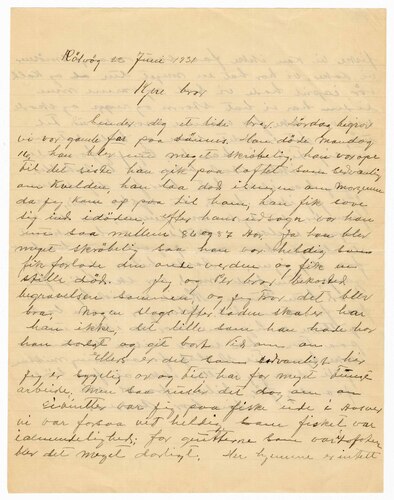 Kølvåg 23 Juni 1931
Kjere bror
Sender dig et lide brev. Lördag begrov
vi vor gamle far paa Männes. han döde mandag
16/ han blev jnu meget skrøbelig, han var ope
til det siste han gik paa loftet som sedvanlig
om kvælden, han laa död i sengen om morgenen
da jeg kom op paa til ham, han fik sove
sig ind i döden. efter hans udsagn var han
saa mellem 86 og 87 Aar, Ja han blev
meget skröbelig saa han var heldig som
fik forlade den onde verden og fik en
stille död. Jeg og Per bror bekosted
begravelsen sammen, og jeg tror det blev
bra, Nogen slags efterladenskaber har
han ikke, det lille som han hade har
han solgt og git bort lid om en
Ellers er det som sedvanligt her
jeg er sygelig av og til har for meget
arbeide, men saa rusler det dog
Vinter var jeg paa fiske ude i
vi var forsaa vit heldig, som fisket var
i almindelighed; for gutterne som
ber det meget darligt. Her hjemme er intet